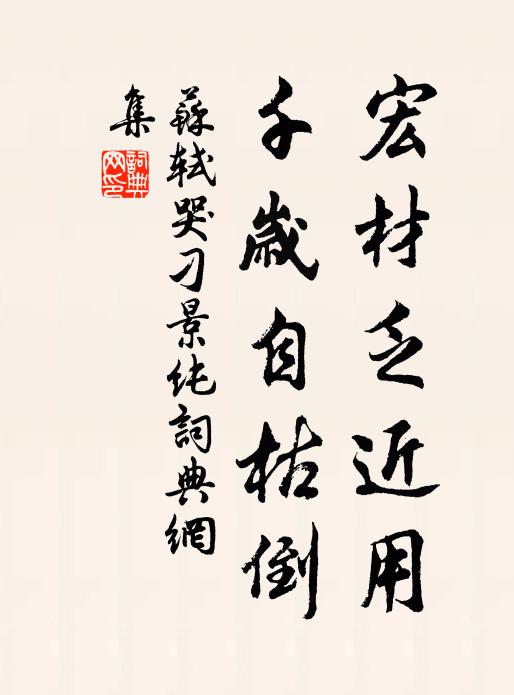 宏材乏近用
千歲自枯倒
蘇軾哭刁景純詞典網
集
詞典
网印